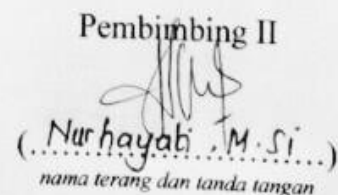 Pembimbing II
(Nurhayati, M.Si)
nama terang dan tanda tangan